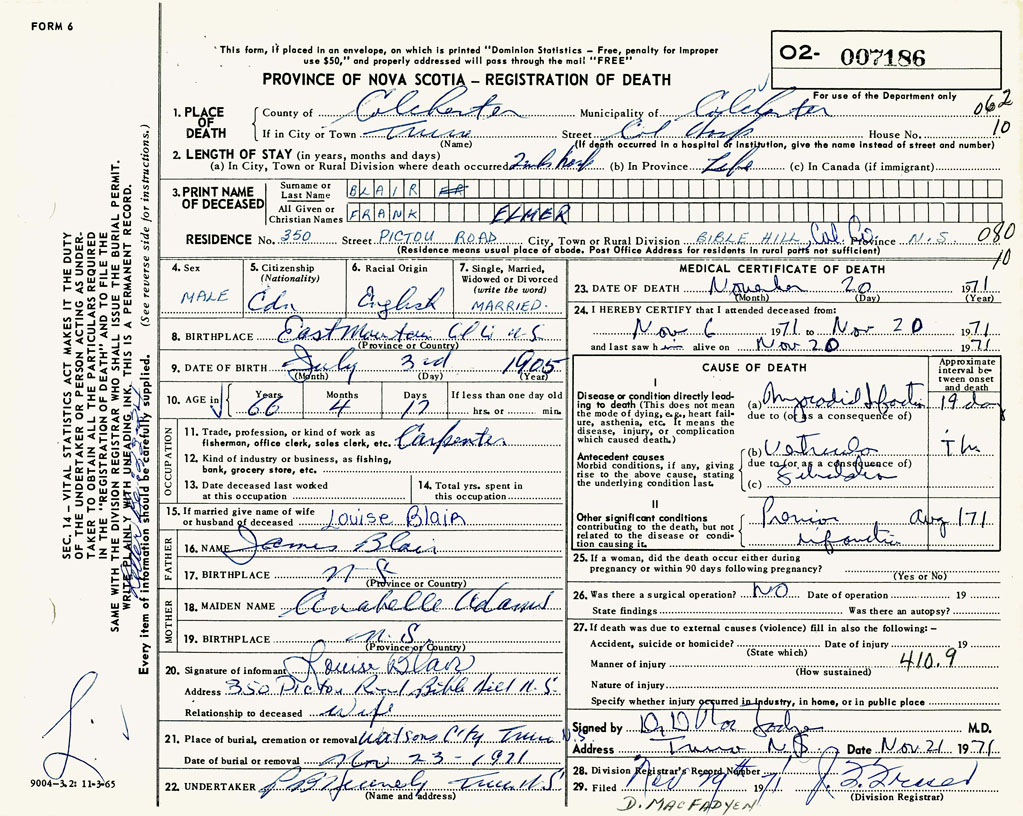 FORM 6
This form, if placed in an envelope, on which is printed "Dominion Statistics – Free, penalty for improper
use $50," and properly addressed will pass through the mail "FREE"
02- 007186
PROVINCE OF NOVA SCOTIA – REGISTRATION OF DEATH
For use of the Department only
062
10
1. PLACE OF DEATH
County of Colchester Municipality of Colchester
If in City or Town Truro Street Col Hosp House No.
(Name) (If death occurred in a hospital or institution, give the name instead of street and number)
2. LENGTH OF STAY (in years, months and days)
(a) In City, Town or Rural Division where death occurred (b) In Province Life (c) In Canada (if immigrant)
3. PRINT NAME OF DECEASED
Surname or Last Name BLAIR
All Given or Christian Names FRANK ELMER
RESIDENCE No. 350 Street PICTOU ROAD City, Town or Rural Division BIBLE HILL, Col. Co. Province N.S. 080
(Residence means usual place of abode. Post Office Address for residents in rural parts not sufficient)
10
4. Sex MALE
5. Citizenship (Nationality) Cdn
6. Racial Origin English
7. Single, Married, Widowed or Divorced (write the word) MARRIED.
8. BIRTHPLACE East Mountain Col Co N.S.
(Province or Country)
9. DATE OF BIRTH July 3rd 1905
(Month) (Day) (Year)
10. AGE in Years 66 Months 4 Days 17 If less than one day old
hrs. or min.
OCCUPATION
11. Trade, profession, or kind of work as
fisherman, office clerk, sales clerk, etc. Carpenter
12. Kind of industry or business, as fishing,
bank, grocery store, etc.
13. Date deceased last worked
at this occupation
14. Total yrs. spent in
this occupation
15. If married give name of wife
or husband of deceased Louise Blair
FATHER
16. NAME James Blair
17. BIRTHPLACE N.S.
(Province or Country)
MOTHER
18. MAIDEN NAME Anabelle Adams
19. BIRTHPLACE N.S.
(Province or Country)
20. Signature of informant Louise Blair
Address 350 Pictou Road Bible Hill N.S.
Relationship to deceased Wife
21. Place of burial, cremation or removal Watsons Cty Truro N.S.
Date of burial or removal Nov 23 - 1971
22. UNDERTAKER Truro N.S.
(Name and address)
MEDICAL CERTIFICATE OF DEATH
23. DATE OF DEATH November 20 1971
(Month) (Day) (Year)
24. I HEREBY CERTIFY that I attended deceased from:
Nov 6 1971 to Nov 20 1971
and last saw him alive on Nov 20 1971
CAUSE OF DEATH
Approximate interval between onset and death
I
Disease or condition directly leading to death (This does not mean the mode of dying, e.g., heart failure, asthenia, etc. It means the disease, injury, or complication which caused death.)
(a) 19 days
due to (or as a consequence of)
Antecedent causes
Morbid conditions, if any, giving rise to the above cause, stating the underlying condition last.
(b)
due to (or as a consequence of)
(c)
II
Other significant conditions contributing to the death, but not related to the disease or condition causing it.
Previous Aug 171
infarction
25. If a woman, did the death occur either during
pregnancy or within 90 days following pregnancy?
(Yes or No)
26. Was there a surgical operation? NO Date of operation 19
State findings Was there an autopsy?
27. If death was due to external causes (violence) fill in also the following: –
Accident, suicide or homicide? Date of injury 19
(State which)
Manner of injury 410.9
(How sustained)
Nature of injury
Specify whether injury occurred in industry, in home, or in public place
Signed by M.D.
Address Truro N.S. Date Nov. 21 1971
28. Division Registrar's Record Number
29. Filed Nov 29th 1971
(Division Registrar)
D. MACFADYEN
SEC. 14 – VITAL STATISTICS ACT MAKES IT THE DUTY
OF THE UNDERTAKER OR PERSON ACTING AS UNDER-
TAKER TO OBTAIN ALL THE PARTICULARS REQUIRED
IN THE "REGISTRATION OF DEATH" AND TO FILE THE
SAME WITH THE DIVISION REGISTRAR WHO SHALL ISSUE THE BURIAL PERMIT.
WRITE PLAINLY WITH UNFADING INK. THIS IS A PERMANENT RECORD.
Every item of information should be carefully supplied. (See reverse side for instructions.)
9004–3.2: 11-3-65